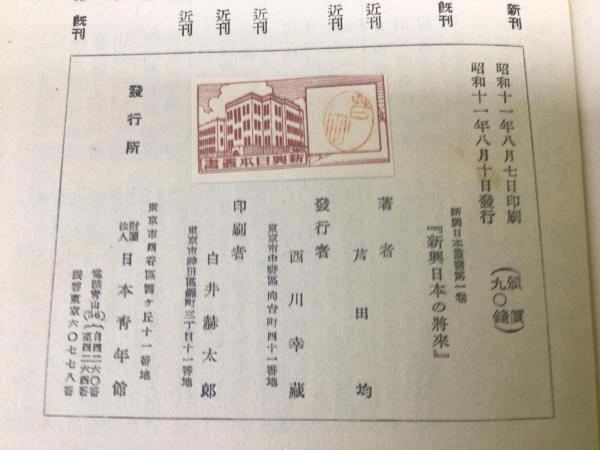 新刊
既刊
近刊
近刊
近刊
近刊
既刊
昭和十一年八月七日印刷
昭和十一年八月十日發行
(頒價九〇錢)
新興日本叢書第一卷
『新興日本の將來』
著者 芦田均
發行者 西川幸藏
東京市中野區向台町四十一番地
印刷者 白井赫太郎
東京市神田區錦町三丁目十一番地
發行所
東京市四谷區霞ケ丘十一番地
財團法人 日本靑年館
電話靑山(36)自四二六〇番至四二六四番
振替東京六〇七七八番
新興日本叢書